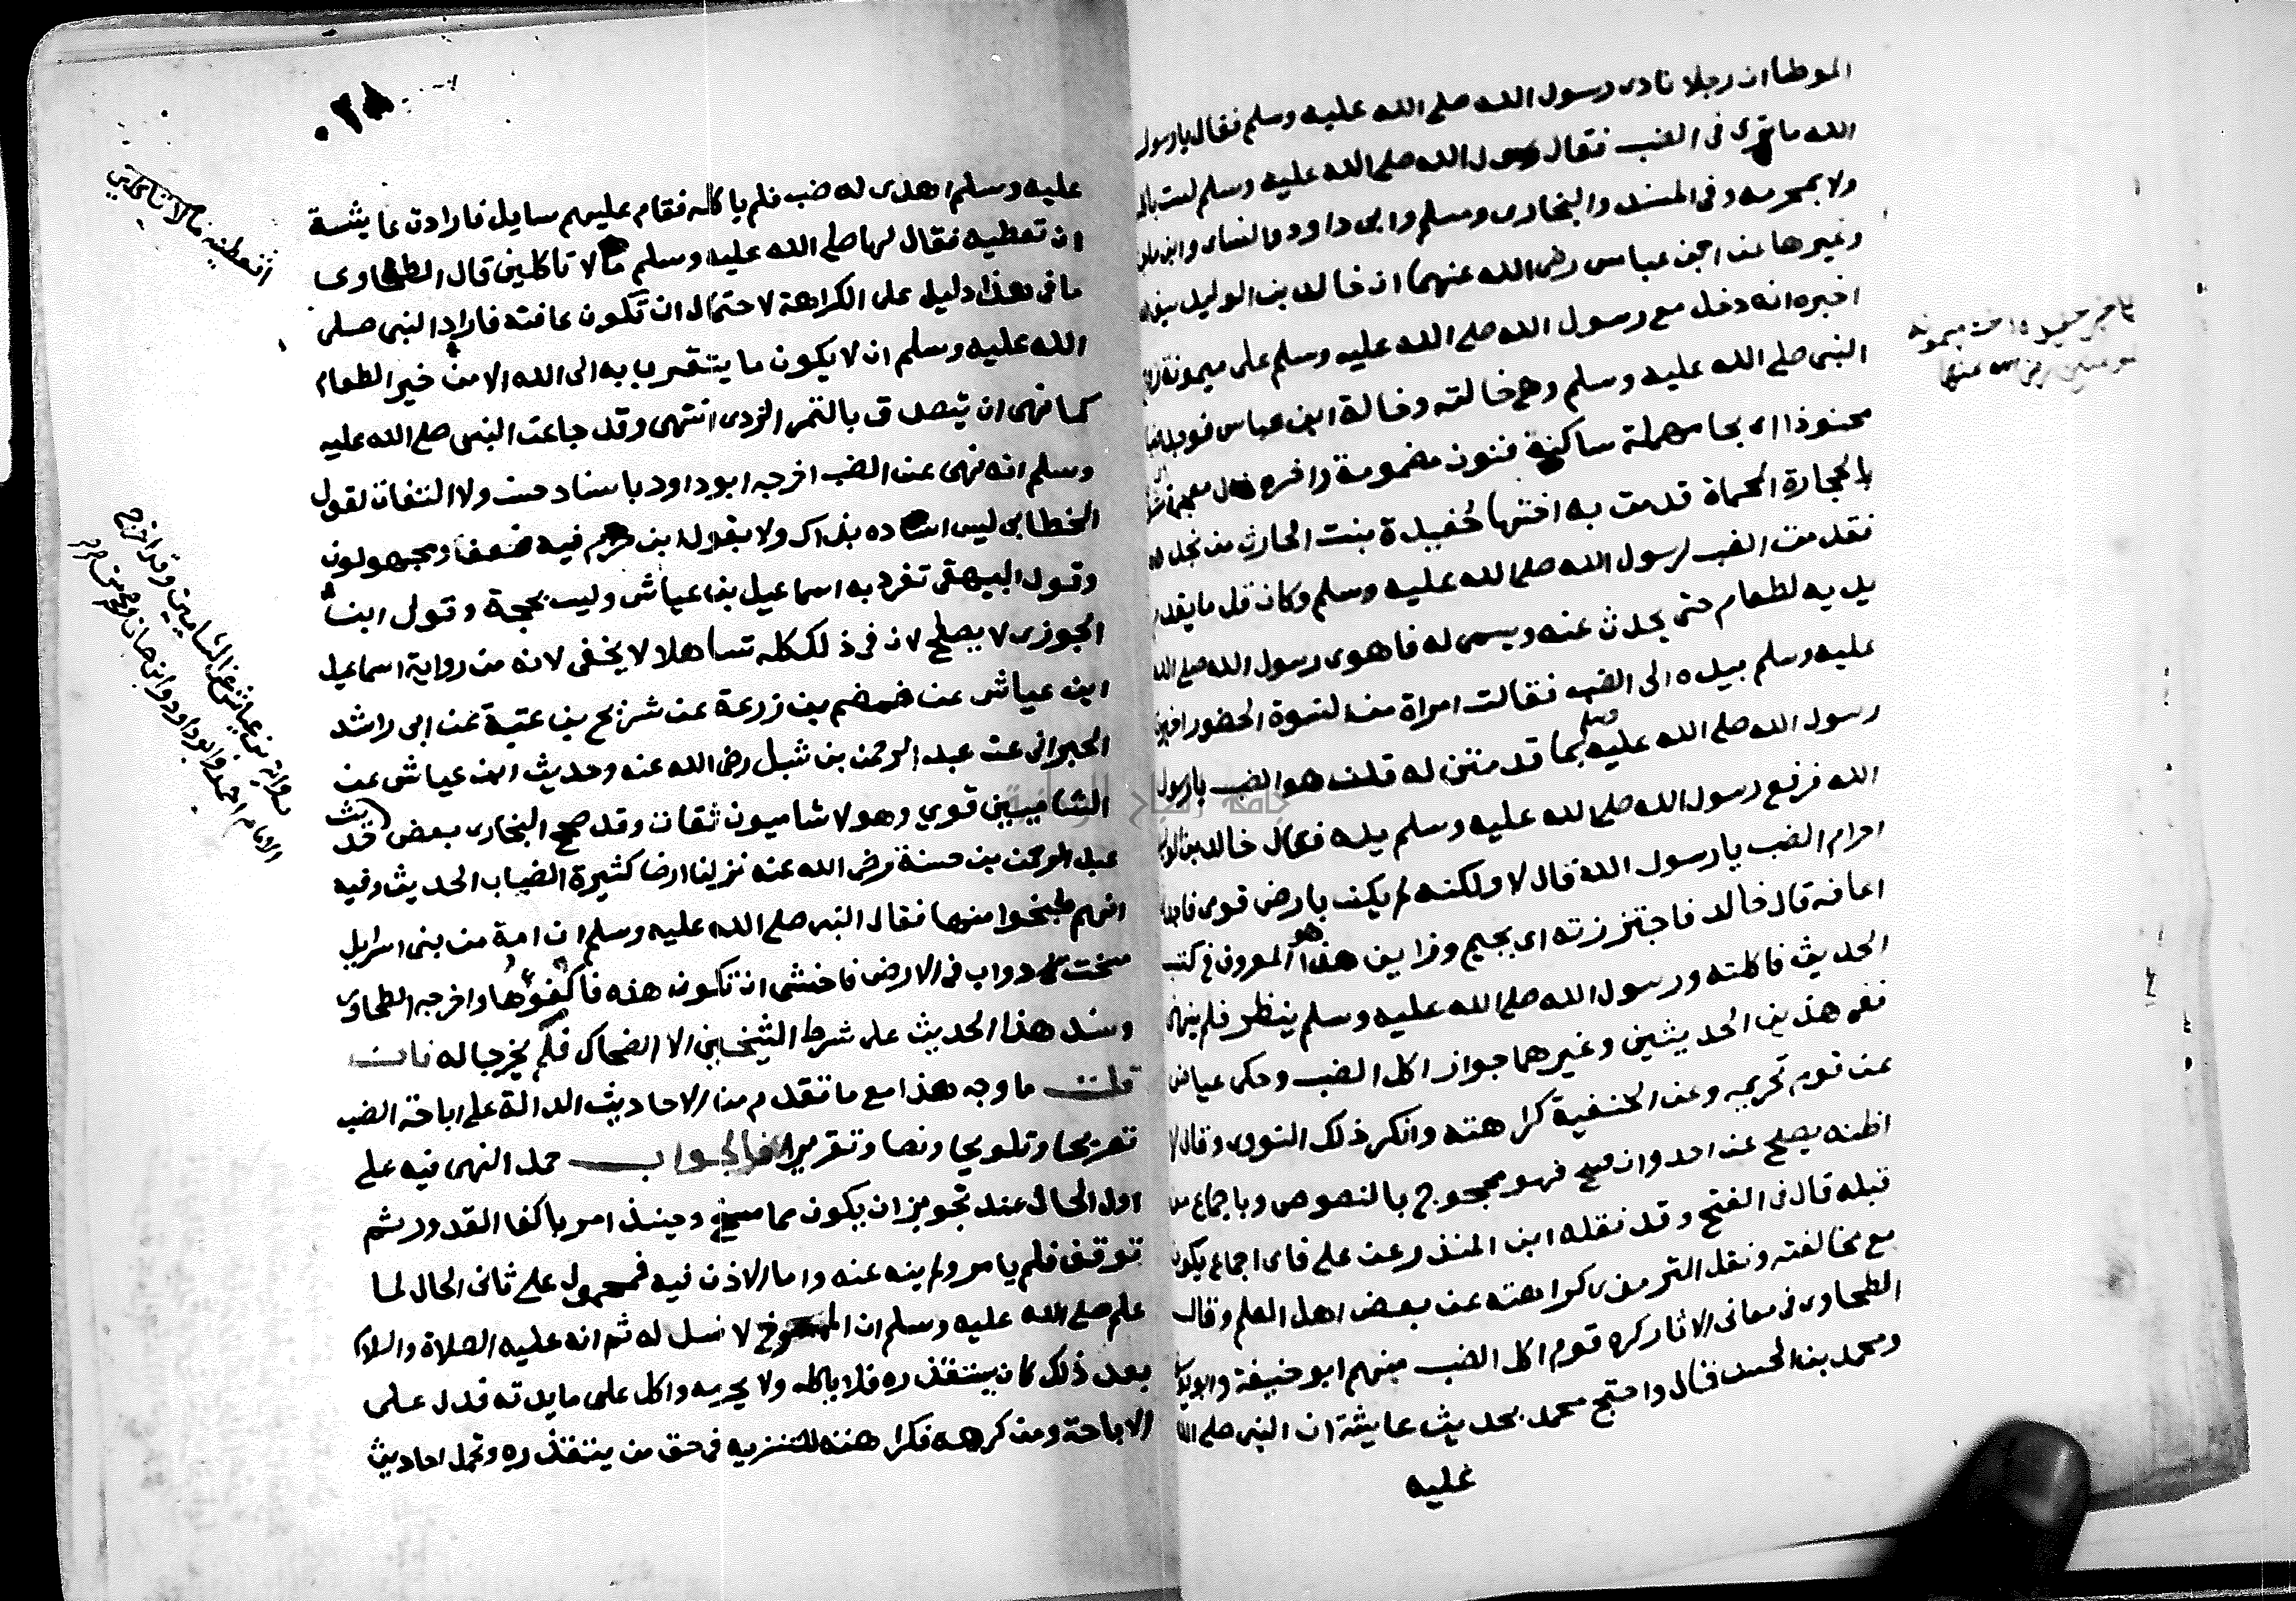 الموطا ان رجلا نادى رسول الله صلى الله عليه وسلم فقال يا رسول
الله ما ترى في الضب فقال رسول الله صلى الله عليه وسلم لست باكله
ولا بمحرمه وفي المسند والبخارى ومسلم وابى داود والنساى وابن ماجه
وغيرها عن ابن عباس رضى الله عنهما ان خالد بن الوليد
اخبره انه دخل مع رسول الله صلى الله عليه وسلم على ميمونة زوج
النبى صلى الله عليه وسلم وهى خالته وخالة ابن عباس فوجد عندها ضبا
محنوذا اى بحا مهملة ساكنة فنون مضمومة واخره ذال معجمة
بالحجارة المحماة قدمت به اختها حفيدة بنت الحارث من نجد
فقدمت الضب لرسول الله صلى الله عليه وسلم وكان قل ما يقدم
يديه لطعام حتى يحدث عنه ويسمى له فاهوى رسول الله صلى الله
عليه وسلم بيده الى الضب فقالت امراة من النسوة الحضور اخبرن
رسول الله صلى الله عليه وسلم بما قدمتن له قلن هو الضب يا رسول
الله فرفع رسول الله صلى الله عليه وسلم يده فقال خالد بن الوليد
احرام الضب يا رسول الله قال لا ولكنه لم يكن بارض قومى فاجدنى
اعافه قال خالد فاجتززته اى بجيم وزايين هذا هو المعروف في كتب
الحديث فاكلته ورسول الله صلى الله عليه وسلم ينظر فلم ينهنى
ففى هذين الحديثين وغيرهما جواز اكل الضب وحكى عياض
عن قوم تحريمه وعن الحنفية كراهته وانكر ذلك النووى وقال لا
اظنه يصح عن احد وان صح فهو محجوج بالنصوص وباجماع من
قبله قال في الفتح وقد نقله ابن المنذر عن على فاى اجماع يكون
مع مخالفته ونقل الترمذى كراهته عن بعض اهل العلم وقال
الطحاوى في معانى الاثار كره قوم اكل الضب منهم ابو حنيفة وابو يوسف
ومحمد بن الحسن قال واحتج محمد بحديث عايشة ان النبى صلى الله
عليه
عليه وسلم اهدى له ضب فلم ياكله فقام عليهم سايل فارادت عايشة
ان تعطيه فقال لها صلى الله عليه وسلم ما لا تاكلين قال الطحاوى
اتعطينه ما لا تاكلين
ما في هذا دليل على الكراهة لاحتمال ان تكون عافته فاراد النبى صلى
الله عليه وسلم ان لا يكون ما يتقرب به الى الله الا من خير الطعام
كما نهى ان يتصدق بالتمر الردى انتهى وقد جا عن النبى صلى الله عليه
وسلم انه نهى عن الضب اخرجه ابو داود باسناد حسن ولا التفات لقول
الخطابى ليس اسناده بذاك ولا بقول ابن حزم فيه ضعفا ومجهولون
وقول البيهقى تفرد به اسماعيل بن عياش وليس بحجة وقول ابن
الجوزى لا يصح لان في ذلك كله تساهلا لا يخفى لانه من رواية اسماعيل
ابن عياش عن ضمضم بن زرعة عن شريح بن عتبة عن ابى راشد
الحبرانى عن عبد الرحمن بن شبل رضى الله عنه وحديث ابن عياش عن
الشاميين قوي وهولا شاميون ثقات وقد صحح البخارى بعض
رواية بن عياش عن الشاميين وقد اخرج
الامام احمد وابو داود وابن حبان
حديث
عبد الرحمن بن حسنة رضى الله عنه نزلنا ارضا كثيرة الضباب الحديث وفيه
انهم طبخوا منها فقال النبى صلى الله عليه وسلم ان امة من بنى اسرايل
مسخت دواب في الارض فاخشى ان تكون هذه فاكفوها واخرجه الطحاوى
وسند هذا الحديث على شرط الشيخين الا الضحاك فلم يخرجا له فان
قلت ما وجه هذا مع ما تقدم من الاحاديث الدالة على اباحة الضب
تصريحا وتلويحا ونصا وتقريرا فالجواب حمل النهى فيه على
اول الحال عند تجويز ان يكون مما مسخ وحينئذ امر باكفا القدور ثم
توقف فلم يامر ولم ينه عنه واما الاذن فيه فمحمول على ثانى الحال لما
علم صلى الله عليه وسلم ان الممسوخ لا نسل له ثم انه عليه الصلاة والسلام
بعد ذلك كان يستقذره فلا ياكله ولا يحرمه واكل على مايدته فدل على
الاباحة ومن كرهه فكراهته للتنزيه في حق من يتقذره وتحمل احاديث